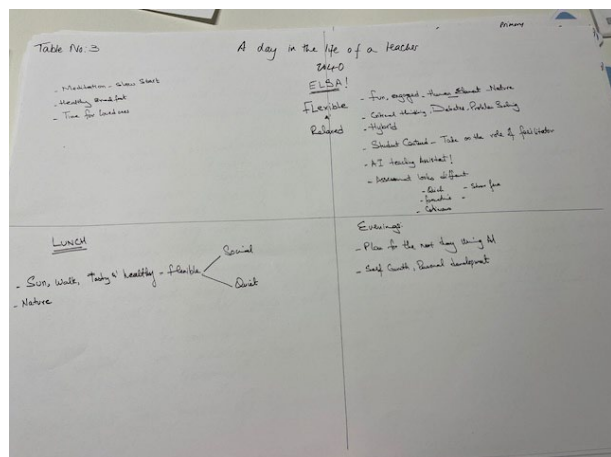 Primary
Table No: 3
A day in the life of a teacher
2040
ELSA!
Flexible
&
Relaxed
- Meditation - Slow Start
- Healthy Breakfast
- Time for Loved ones
- Fun, engaged - Human Element - Nature
- Critical thinking, Debates, Problem Solving
- Hybrid
- Student Centered - Take on the role of facilitator
- AI teaching Assistant!
- Assessment looks different
- Quick
- Formative
LUNCH
- Sun, Walk, Tasty & healthy - flexible
Social
Quiet
- Nature
Evenings:
- Plan for the next day using AI
- Self Growth, Personal development